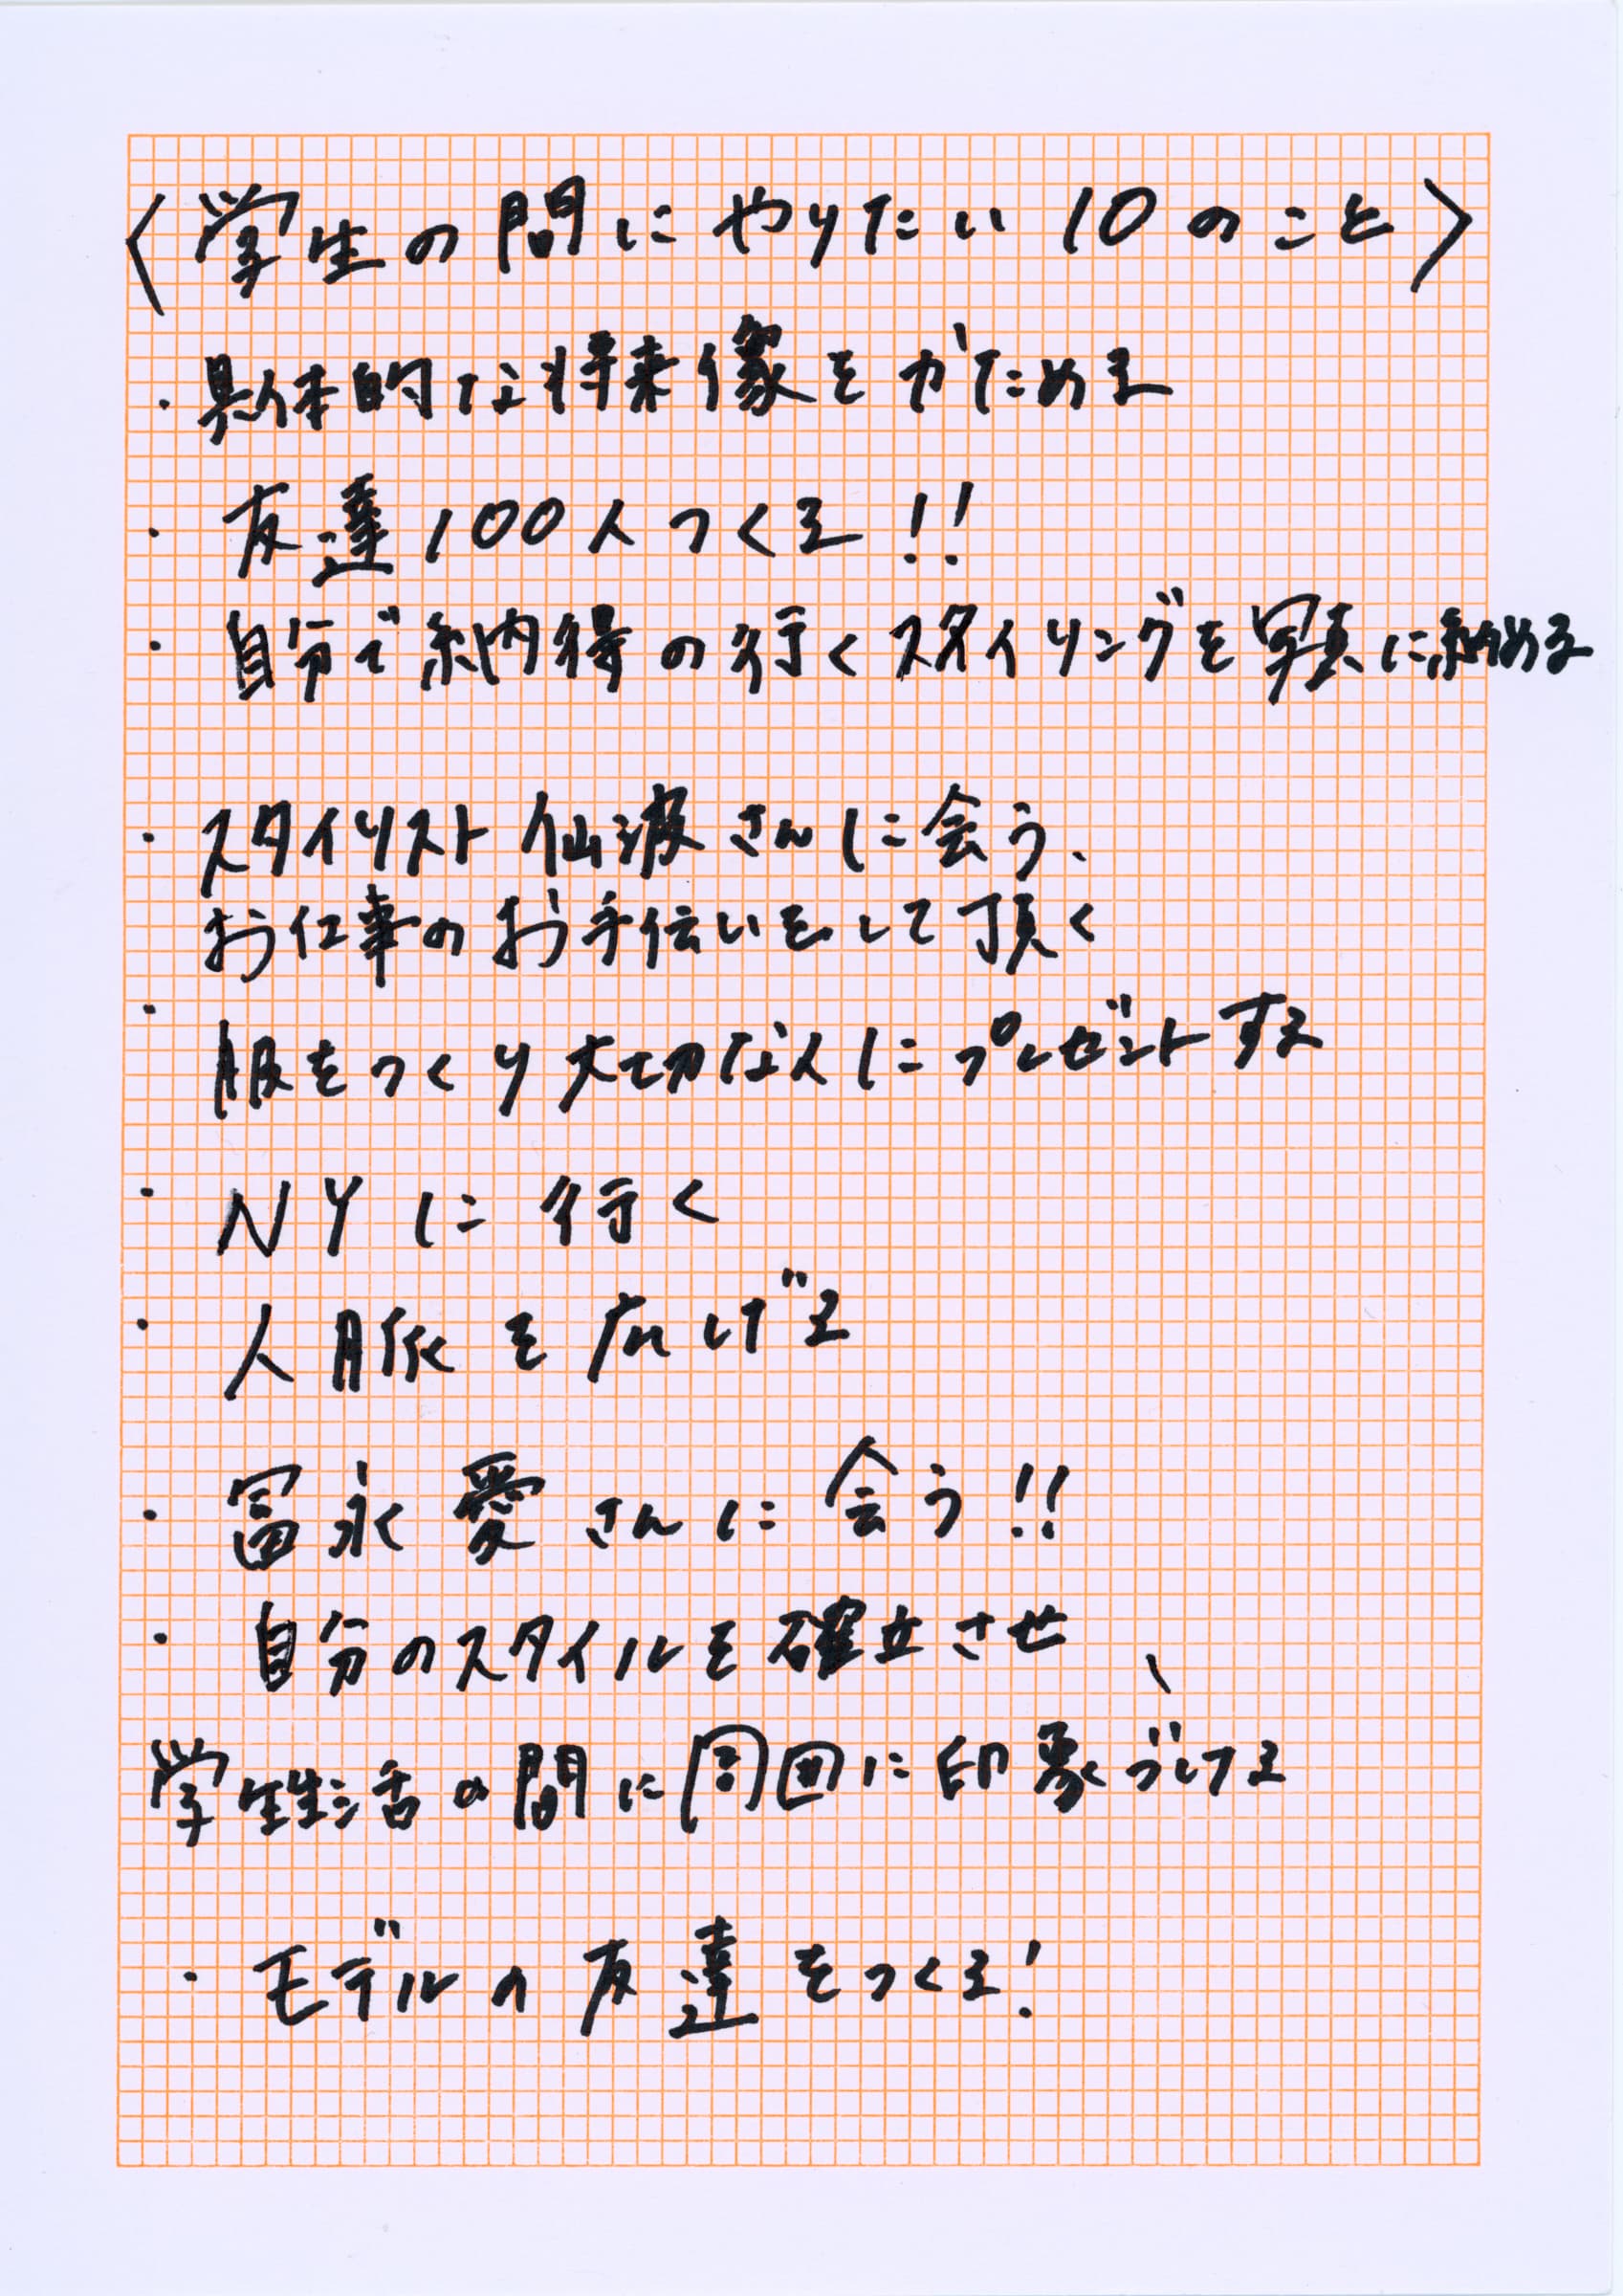 〈学生の間にやりたい10のこと〉
・具体的な将来像をかためる
・友達100人つくる!!
・自分で納得の行くスタイリングを写真に納める
・スタイリスト仙波さんに会う、
お仕事のお手伝いをして頂く
・服をつくり大切な人にプレゼントする
・NYに行く
・人脈を広げる
・冨永愛さんに会う!!
・自分のスタイルを確立させ、
学生生活の間に周囲に印象づける
・モデルの友達をつくる!